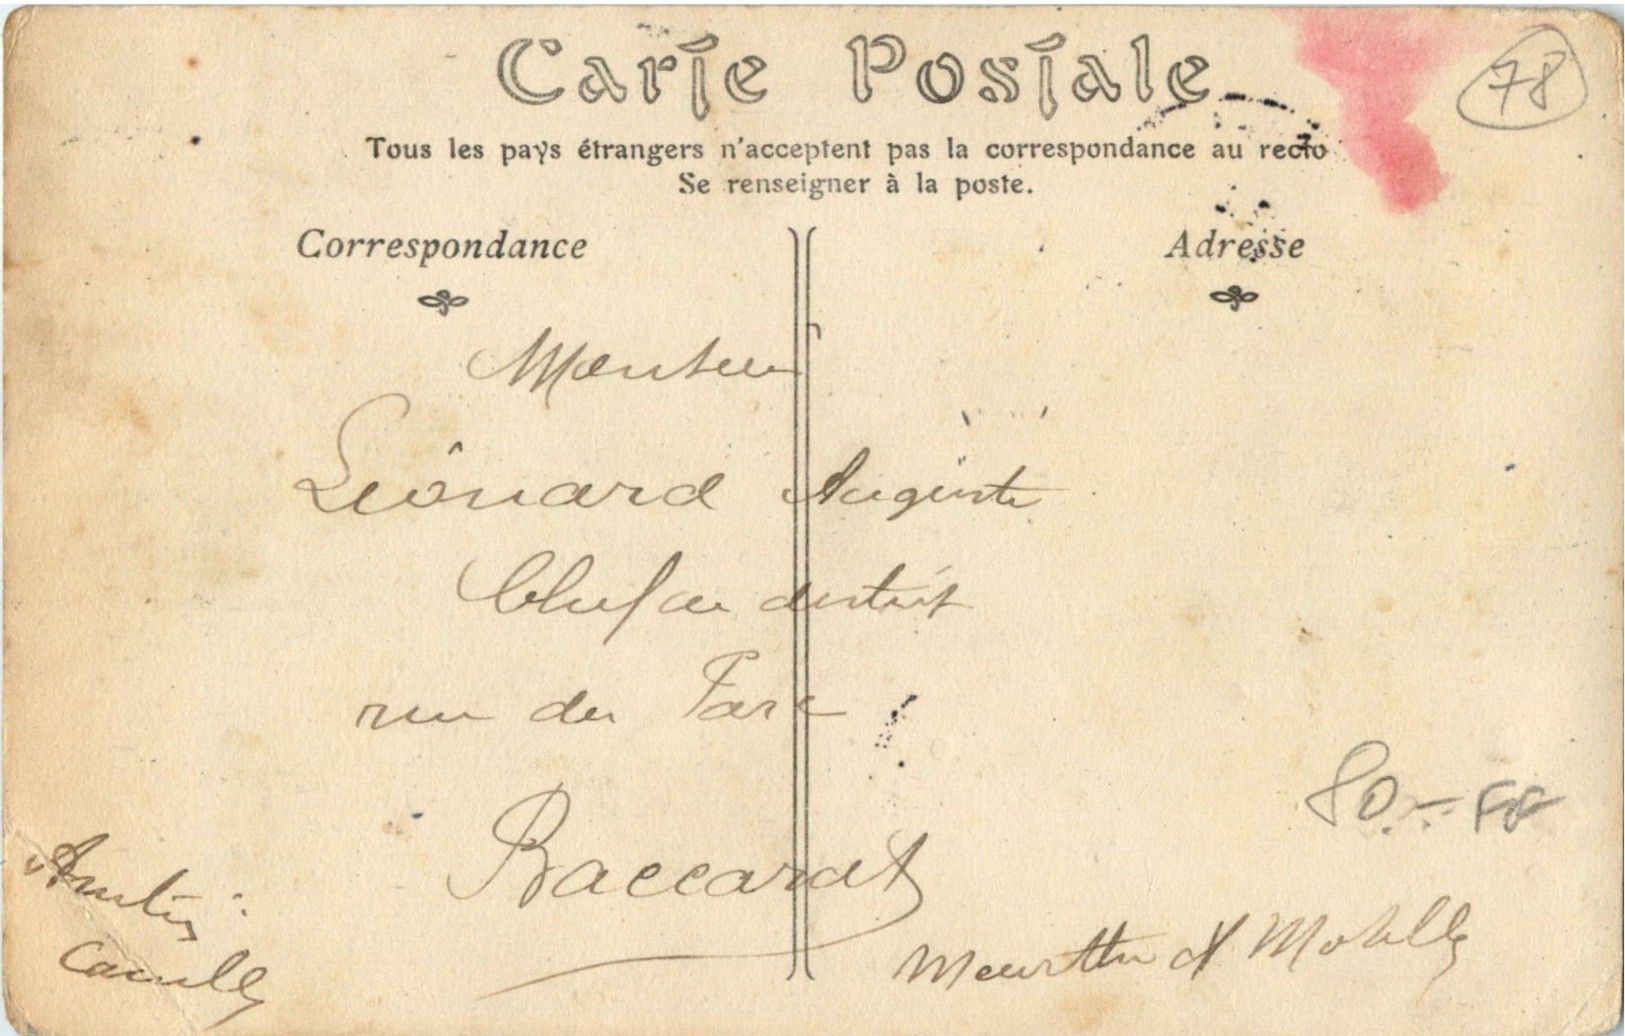 Carte Postale
78
Tous les pays étrangers n'acceptent pas la correspondance au recto
Se renseigner à la poste.
Correspondance
Adresse
Monsieur
Léonard Auguste
Chef de district
rue du Parc
80.-
Baccarat
Meurthe et Moselle
Amitiés
Camille